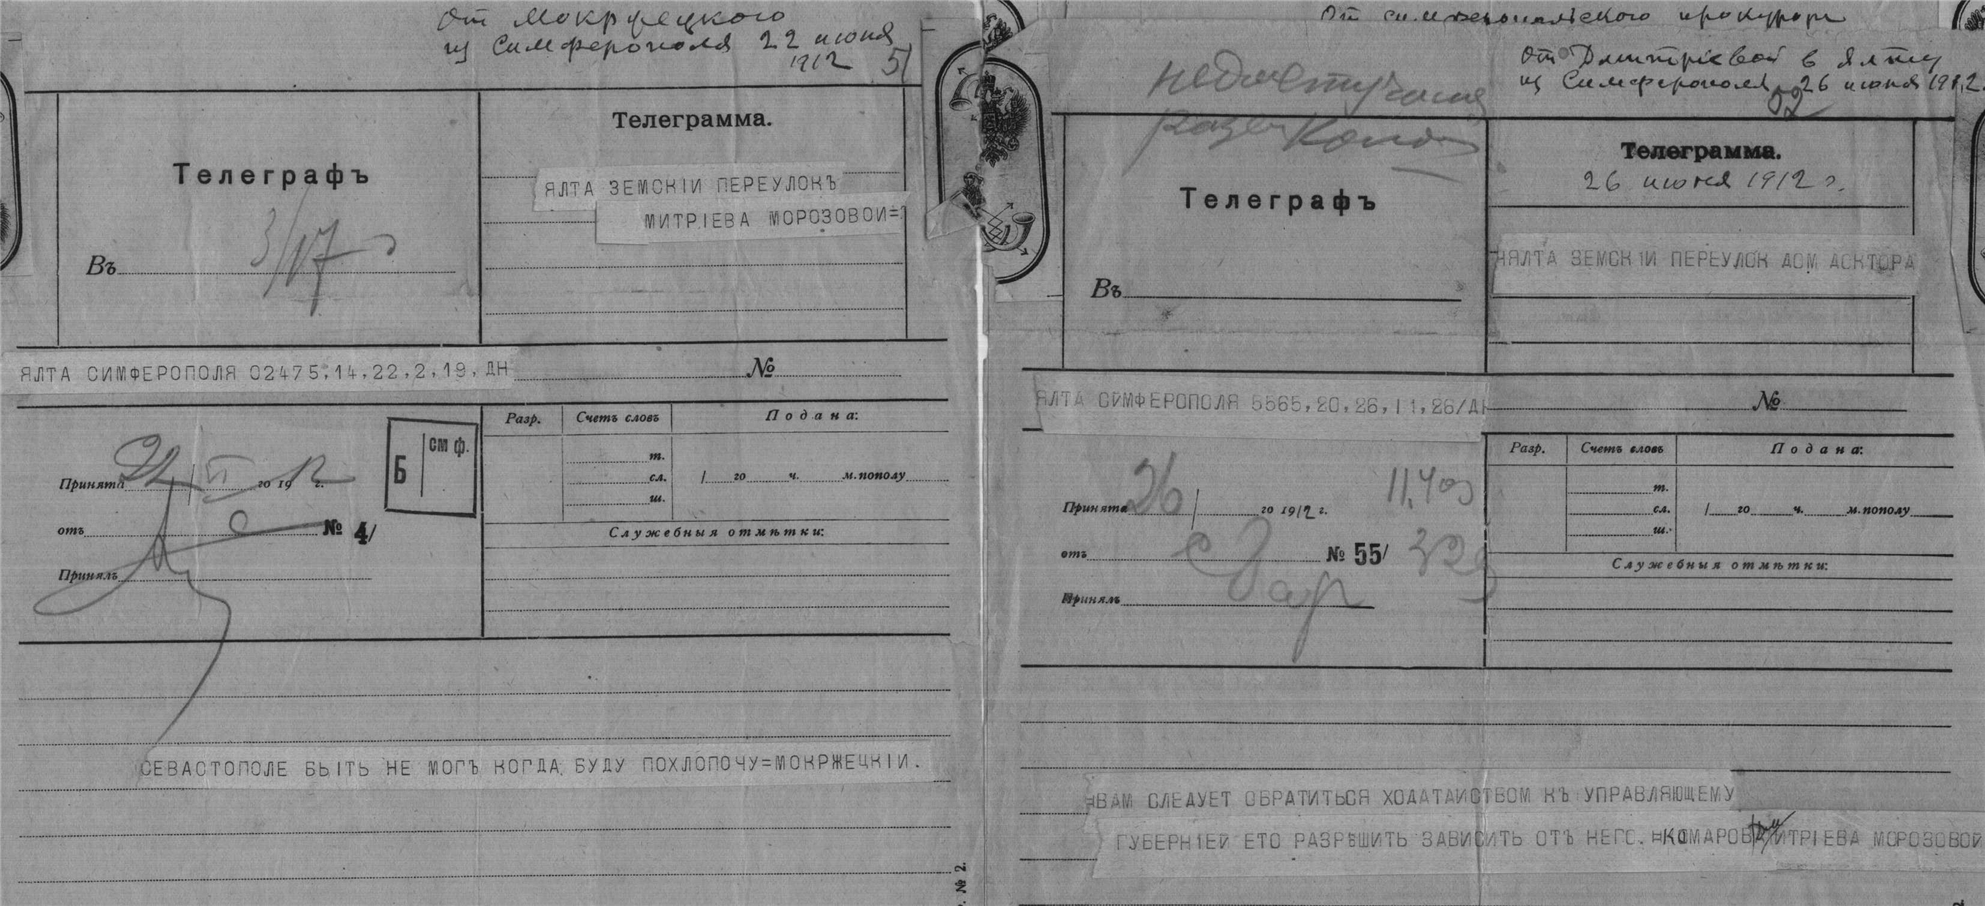 От Мокржецкого
из Симферополя 22 июня
1912 51
Телеграфъ
Въ
Телеграмма.
ЯЛТА ЗЕМСКIИ ПЕРЕУЛОКЪ
МИТРIЕВА МОРОЗОВОИ=
ЯЛТА СИМФЕРОПОЛЯ 02475,14,22,2,19,ДН
№
Принята 22/VI го 1912 г.
отъ С № 4/
Принялъ
Б см ф.
Разр. Счетъ словъ Подана:
т.
сл. / го ч. м. пополу
ш.
Служебныя отмѣтки:
СЕВАСТОПОЛЕ БЫТЬ НЕ МОГЪ КОГДА БУДУ ПОХЛОПОЧУ=МОКРЖЕЦКIИ.
№ 2.
От симферопольского прокурора
От Дмитриевой в Ялту
из Симферополя 26 июня 1912
52
Телеграфъ
Въ
Телеграмма.
26 июня 1912 г.
ЯЛТА ЗЕМСКIИ ПЕРЕУЛОК ДОМ ДОКТОРА
ЯЛТА СИМФЕРОПОЛЯ 5565,20,26,11,26/ДН
№
Принята 26/ го 1912 г. 11,40
отъ С № 55/
Принялъ
Разр. Счетъ словъ Подана:
т.
сл. / го ч. м. пополу
ш.
Служебныя отмѣтки:
=ВАМ СЛЕДУЕТ ОБРАТИТЬСЯ ХОДАТАИСТВОМ КЪ УПРАВЛЯЮЩЕМУ
ГУБЕРНIЕИ ЕТО РАЗРѢШИТЬ ЗАВИСИТЬ ОТЪ НЕГО.=КОМАРОВ ДМИТРIЕВА МОРОЗОВОИ